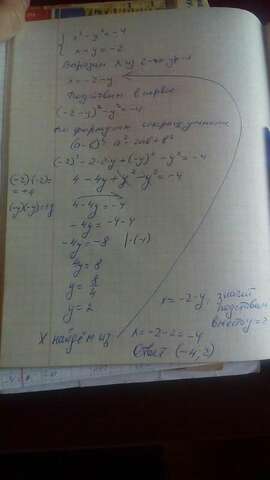 x² - y² = -4
x - y = -2
Выразим X из 2-го ур-я
x = -2 - y
Подставим в первое
(-2 - y)² - y² = -4
По формулам сокращ умнож
(a - b)² = a² - 2ab + b²
(-2)² - 2·2·y + (-y)² - y² = -4
(-2)·(-2) =
= +4
4 - 4y + y² - y² = -4
(-y)(-y) = y
4 - 4y = -4
-4y = -4 - 4
-4y = -8 | ·(-1)
4y = 8
y = 8/4
y = 2
X найдём из
x = -2 - y, значит
подставим
вместо y = 2
x = -2 - 2 = -4
Ответ (-4; 2)